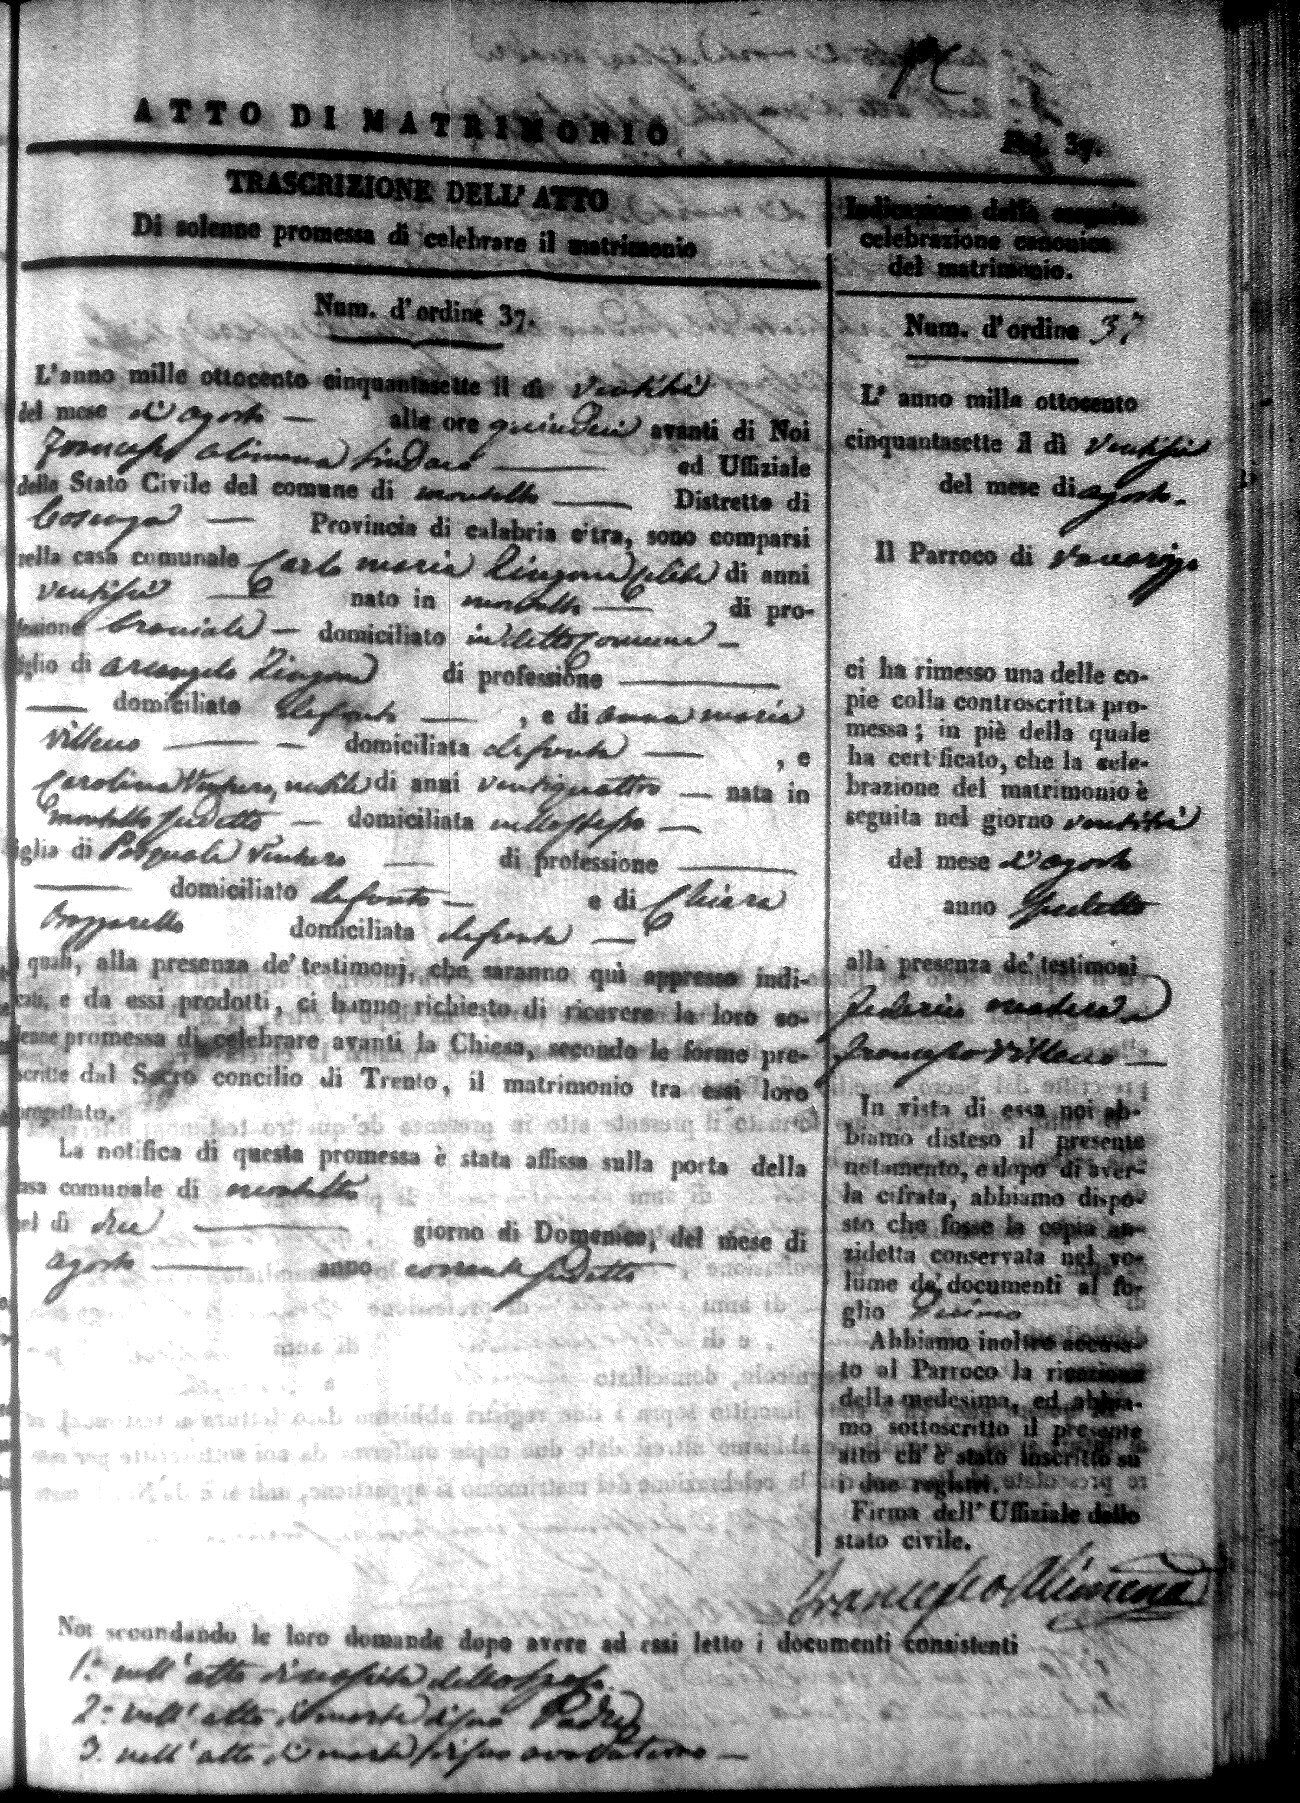 ATTO DI MATRIMONIO
Fol. 37.
TRASCRIZIONE DELL' ATTO
Di solenne promessa di celebrare il matrimonio
Num. d' ordine 37.
L'anno mille ottocento cinquantasette il di ventitrè
del mese d'agosto alle ore quindeci avanti di Noi
Francesco Alimena Sindaco ed Uffiziale
dello Stato Civile del comune di Montalto Distretto di
Cosenza Provincia di calabria citra, sono comparsi
nella casa comunale Carlo Maria celibe di anni
nato in Montalto di pro-
fessione domiciliato in detto Comune
figlio di Arcangelo di professione
domiciliato defonto , e di Anna Maria
Villecco domiciliata defonta , e
Carolina Ventura, nubile di anni ventiquattro nata in
Montalto sudetto domiciliata nello stesso
figlia di Pasquale Ventura di professione
domiciliato defonto e di Chiara
domiciliata defonta
i quali, alla presenza de' testimonj, che saranno quì appresso indi-
cati, e da essi prodotti, ci hanno richiesto di ricevere la loro so-
lenne promessa di celebrare avanti la Chiesa, secondo le forme pre-
scritte dal Sacro concilio di Trento, il matrimonio tra essi loro
progettato.
La notifica di questa promessa è stata affissa sulla porta della
casa comunale di Montalto
nel dì due giorno di Domenica, del mese di
agosto anno corrente sudetto
Indicazione della seguita
celebrazione canonica
del matrimonio.
Num. d' ordine 37
L' anno mille ottocento
cinquantasette il dì
del mese di agosto.
Il Parroco di Vaccarizzo
ci ha rimesso una delle co-
pie colla controscritta pro-
messa; in piè della quale
ha certificato, che la cele-
brazione del matrimonio è
seguita nel giorno ventitrè
del mese d'agosto
anno sudetto
alla presenza de' testimoni
Federico
Francesco Villecco
In vista di essa noi ab-
biamo disteso il presente
notamento, e dopo di aver-
la cifrata, abbiamo dispo-
sto che fosse la copia an-
zidetta conservata nel vo-
lume de' documenti al fo-
glio
Abbiamo inoltre accusa-
to al Parroco la ricezione
della medesima, ed abbia-
mo sottoscritto il presente
atto ch' è stato inscritto su
i due registri.
Firma dell' Uffiziale dello
stato civile.
Francesco Alimena
Noi secondando le loro domande dopo avere ad essi letto i documenti consistenti
1.° nell'atto di nascita dello sposo.
2.° nell'atto di morte di suo Padre
3. nell'atto di morte di suo avo paterno